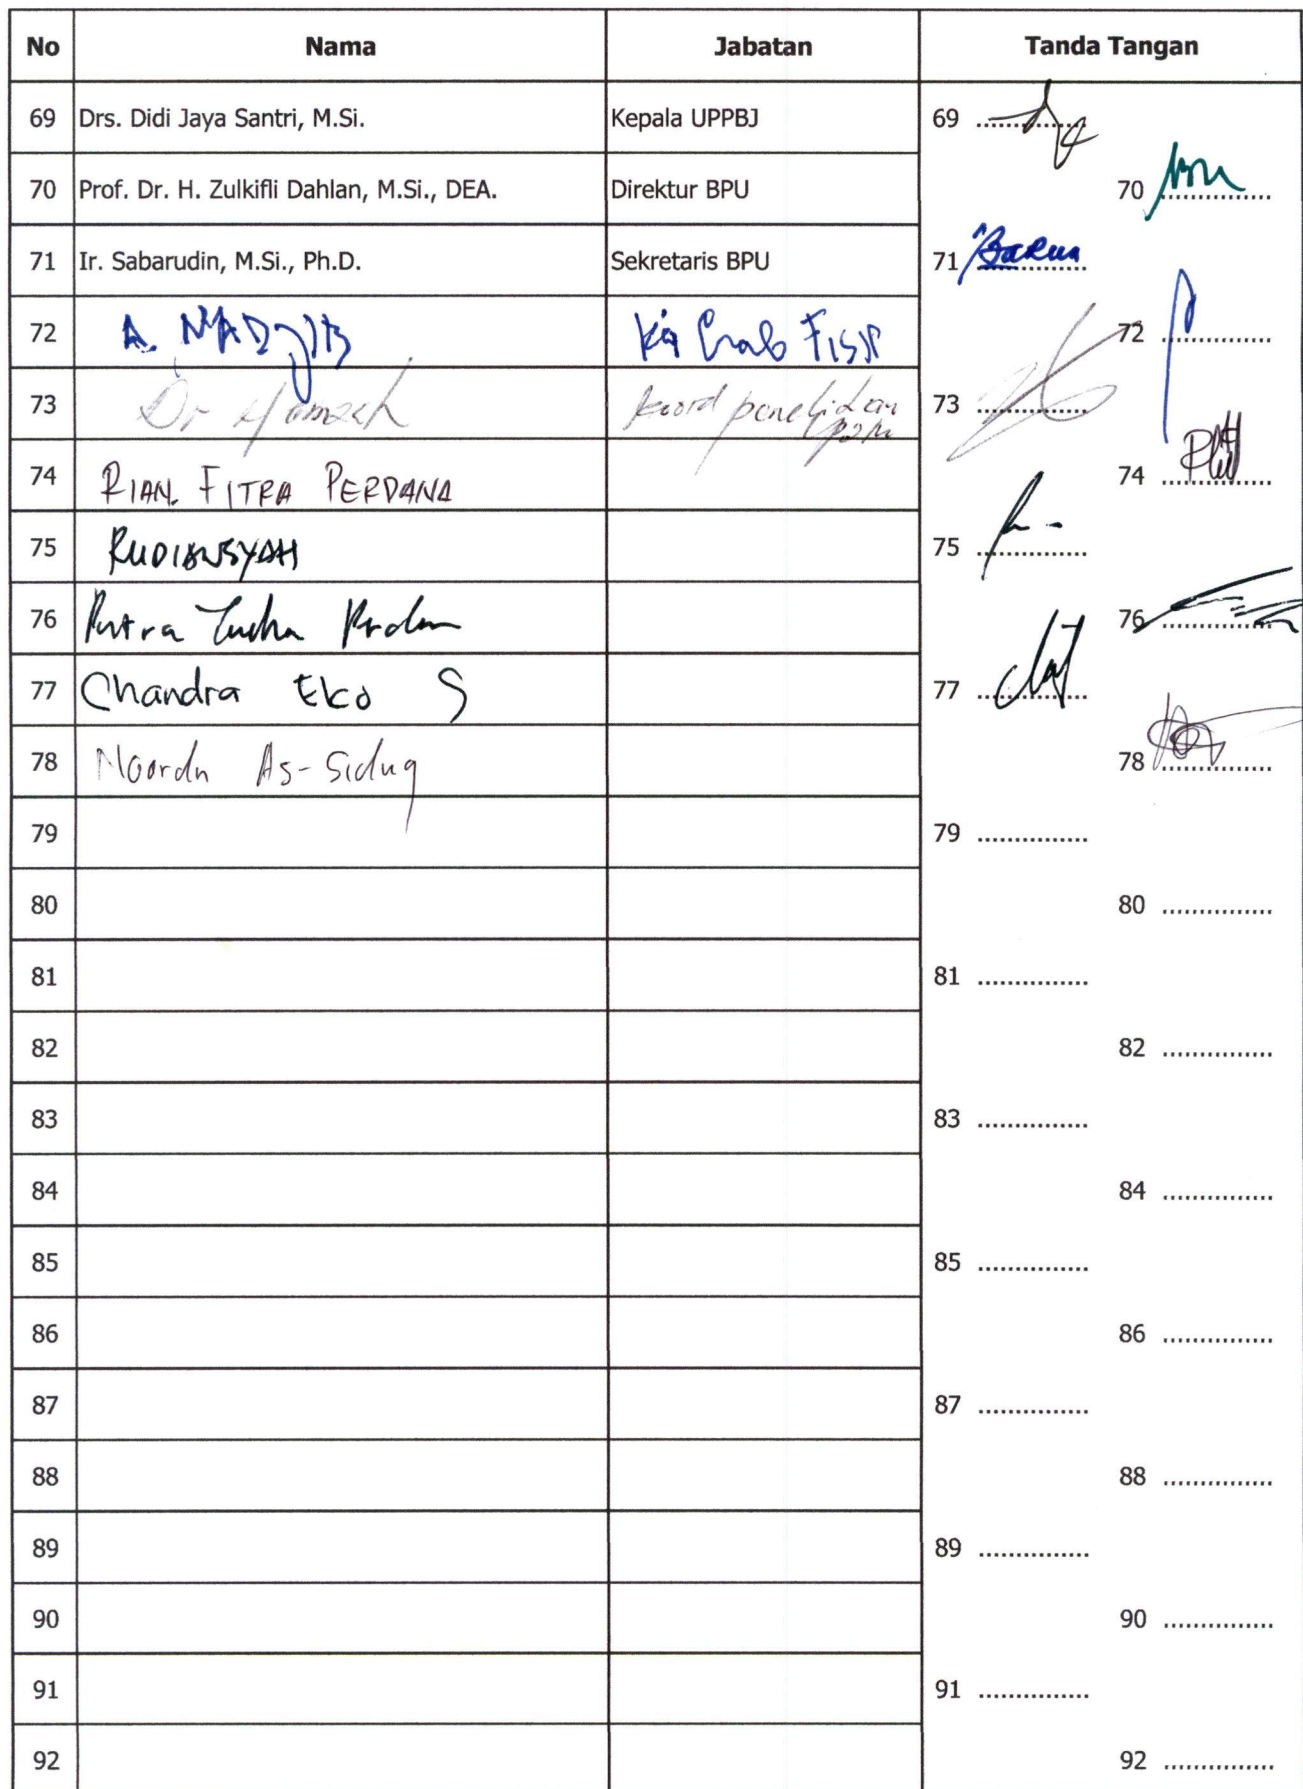 No Nama Jabatan Tanda Tangan
69 Drs. Didi Jaya Santri, M.Si. Kepala UPPBJ 69 ...............
70 Prof. Dr. H. Zulkifli Dahlan, M.Si., DEA. Direktur BPU 70 ...............
71 Ir. Sabarudin, M.Si., Ph.D. Sekretaris BPU 71 ...............
72 A. MADJIB 72 ...............
73 Dr Hamzah Koord penelitian 73 ...............
74 RIAN. FITRA PERDANA 74 ...............
75 RUDIANSYAH 75 ...............
76 Putra 76 ...............
77 Chandra Eko S 77 ...............
78 As-Siduq 78 ...............
79 79 ...............
80 80 ...............
81 81 ...............
82 82 ...............
83 83 ...............
84 84 ...............
85 85 ...............
86 86 ...............
87 87 ...............
88 88 ...............
89 89 ...............
90 90 ...............
91 91 ...............
92 92 ...............